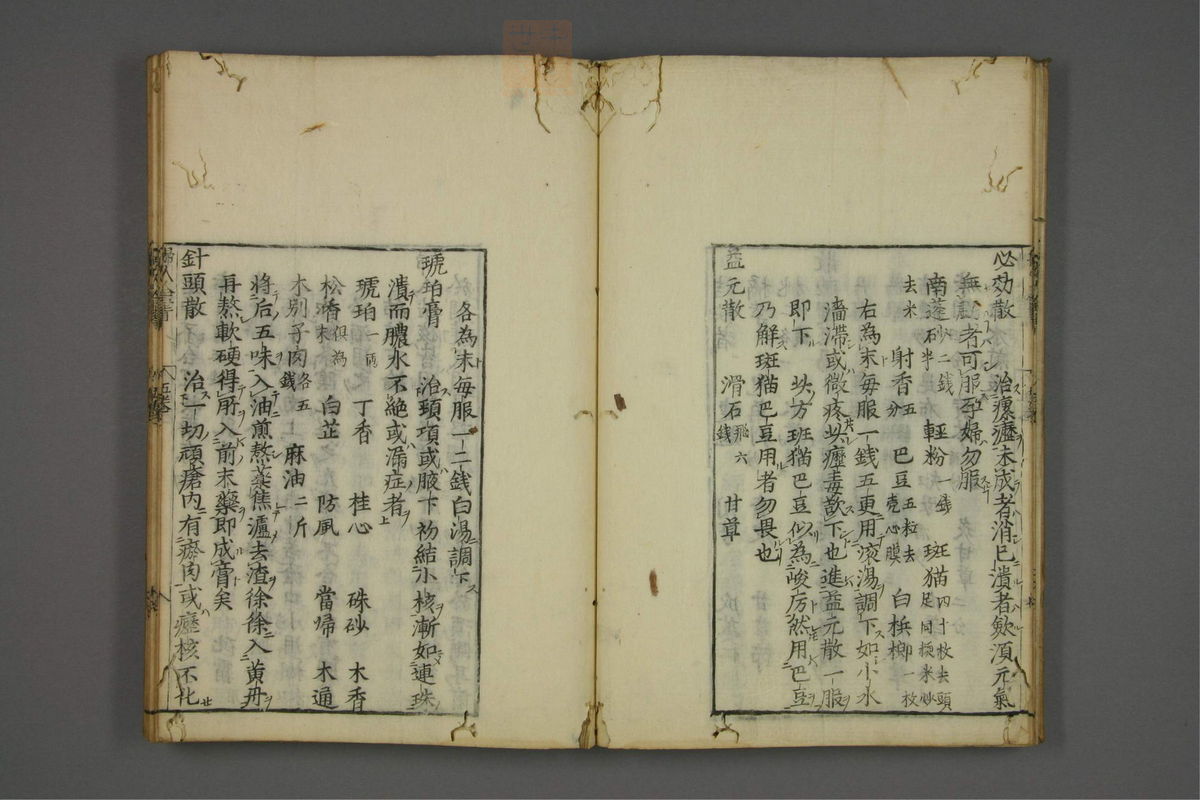 心効散　治瘰癧未成者消已潰者歛須元氣
無虧者可服孕婦勿服
南蓬砂二錢石半　輕粉一錢　斑猫四十枚去頭足同糯米炒
去米　射香五分　巴豆五粒去壳心膜　白梹榔一枚
右為末每服一錢五更用滚湯調下如小水
濇滞或微疼此癧毒歆下也進益元散一服
即下此方斑猫巴豆似為峻厉然用巴豆
乃解斑猫巴豆用者勿畏也
益元散　滑石飛六錢　甘草
各為末每服一二錢白湯調下
琥珀膏　治頚項或腋下初結小核漸如連珠
潰而膿水不絶或漏症者
琥珀一兩　丁香　桂心　硃砂　木香
松香俱為末　白芷　防風　當帰　木通
木別子肉各五錢　麻油二斤
將后五味入油煎熬藥焦濾去渣徐徐入黄丹
再熬軟硬得所入前末藥即成膏矣
針頭散　治一切頑瘡内有瘀肉或癧核不化